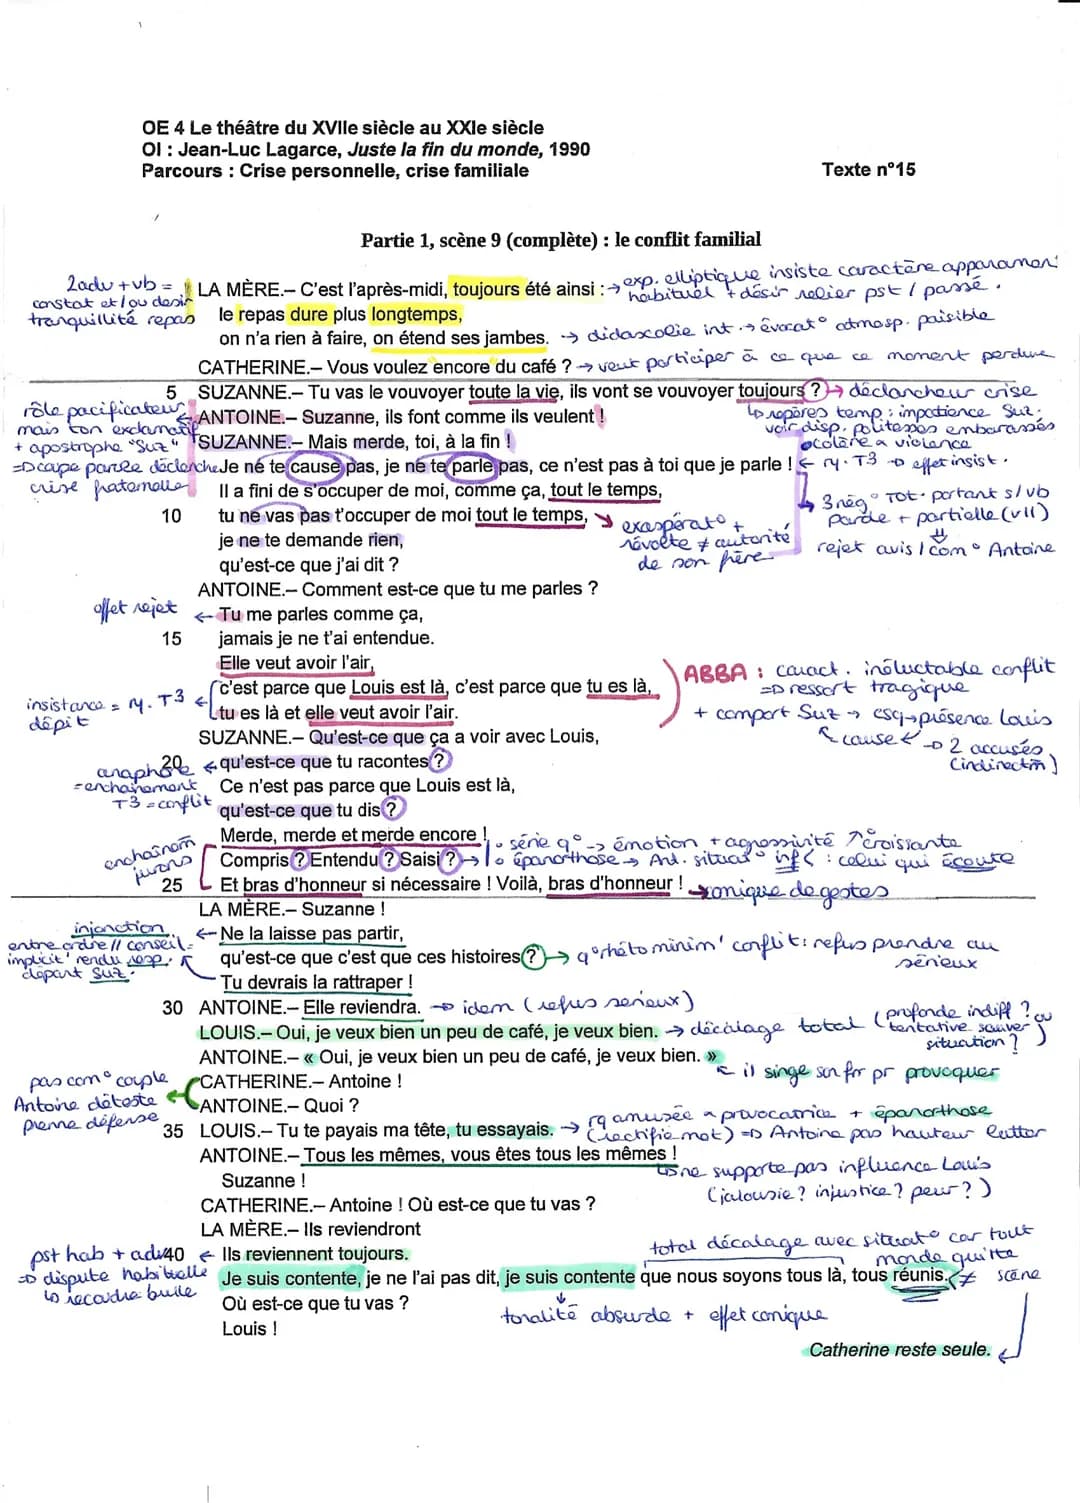 OE 4 Le théâtre du XVIIe siècle au XXIe siècle
OI : Jean-Luc Lagarce, Juste la fin du monde, 1990
Parcours : Crise personnelle, crise familiale
Texte n°15
Partie 1, scène 9 (complète) : le conflit familial
2adv + vb =
constat et/ou desir
tranquillité repas
LA MÈRE.– C'est l'après-midi, toujours été ainsi :
→ exp. elliptique insiste caractère apparamen'
habituel + désir relier pst / passé.
le repas dure plus longtemps,
on n'a rien à faire, on étend ses jambes.
→ didascalie int. → évocat° atmosp. paisible
CATHERINE.– Vous voulez encore du café ?
→ veut participer à ce que ce moment perdure
5 SUZANNE.– Tu vas le vouvoyer toute la vie, ils vont se vouvoyer toujours ?
→ déclancheur crise
↳ repères temp : impatience Suz.
voir disp. politesses embarassés
colère a violence
rôle pacificateur
mais ton exclamatif
+ apostrophe "Suz"
=> coupe parole déclenche
crise fraternelle
ANTOINE.– Suzanne, ils font comme ils veulent !
SUZANNE.– Mais merde, toi, à la fin !
Je ne te cause pas, je ne te parle pas, ce n'est pas à toi que je parle !
← ry. T3 → effet insist.
Il a fini de s'occuper de moi, comme ça, tout le temps,
10 tu ne vas pas t'occuper de moi tout le temps,
je ne te demande rien,
qu'est-ce que j'ai dit ?
exaspérat° +
révolte ≠ autorité
de son frère
3 nég° TOT. portant s/ vb
parole + partielle (v11)
⇓
rejet avis / com° Antoine
ANTOINE.– Comment est-ce que tu me parles ?
effet rejet ← Tu me parles comme ça,
15 jamais je ne t'ai entendue.
Elle veut avoir l'air,
c'est parce que Louis est là, c'est parce que tu es là,
tu es là et elle veut avoir l'air.
insistance = ry. T3
dépit
ABBA : caract. inéluctable conflit
=> ressort tragique
+ comport Suz → csq → présence Louis
cause → 2 accusés
(indirectm)
SUZANNE.– Qu'est-ce que ça a voir avec Louis,
20 qu'est-ce que tu racontes ?
Ce n'est pas parce que Louis est là,
qu'est-ce que tu dis ?
anaphore
= enchainement
T3 = conflit
Merde, merde et merde encore !
Compris ? Entendu ? Saisi ?
25 Et bras d'honneur si nécessaire ! Voilà, bras d'honneur !
enchaînem
jurons
• série q° → émotion + agressivité ↗ croissante
• épanorthose → Ant. situat° inf : celui qui écoute
→ comique de gestes
LA MÈRE.– Suzanne !
← Ne la laisse pas partir,
qu'est-ce que c'est que ces histoires ?
→ q° rhéto minim' conflit : refus prendre au
sérieux
Tu devrais la rattraper !
injonction
entre ordre // conseil
implicit' rendu resp.
départ Suz.
30 ANTOINE.– Elle reviendra. → idem (refus serieux)
LOUIS.– Oui, je veux bien un peu de café, je veux bien. → décalage total
(profonde indiff ? ou
tentative sauver
situation ?)
ANTOINE.– « Oui, je veux bien un peu de café, je veux bien. »
↖ il singe son frr pr provoquer
CATHERINE.– Antoine !
ANTOINE.– Quoi ?
pas com° couple
Antoine déteste
prenne défense
35 LOUIS.– Tu te payais ma tête, tu essayais. →
rq amusée a provocatrice + épanorthose
(rectifie mot) => Antoine pas hauteur lutter
ANTOINE.– Tous les mêmes, vous êtes tous les mêmes !
↳ ne supporte pas influence Louis
(jalousie ? injustice ? peur ?)
Suzanne !
CATHERINE.– Antoine ! Où est-ce que tu vas ?
LA MÈRE.– Ils reviendront
40 ← Ils reviennent toujours.
pst hab + adv
=> dispute habituelle
↳ recoudre bulle
total décalage avec situat° car tout
monde quitte
scène
Je suis contente, je ne l'ai pas dit, je suis contente que nous soyons tous là, tous réunis. ≠
Où est-ce que tu vas ?
tonalité absurde + effet comique
Louis !
Catherine reste seule.